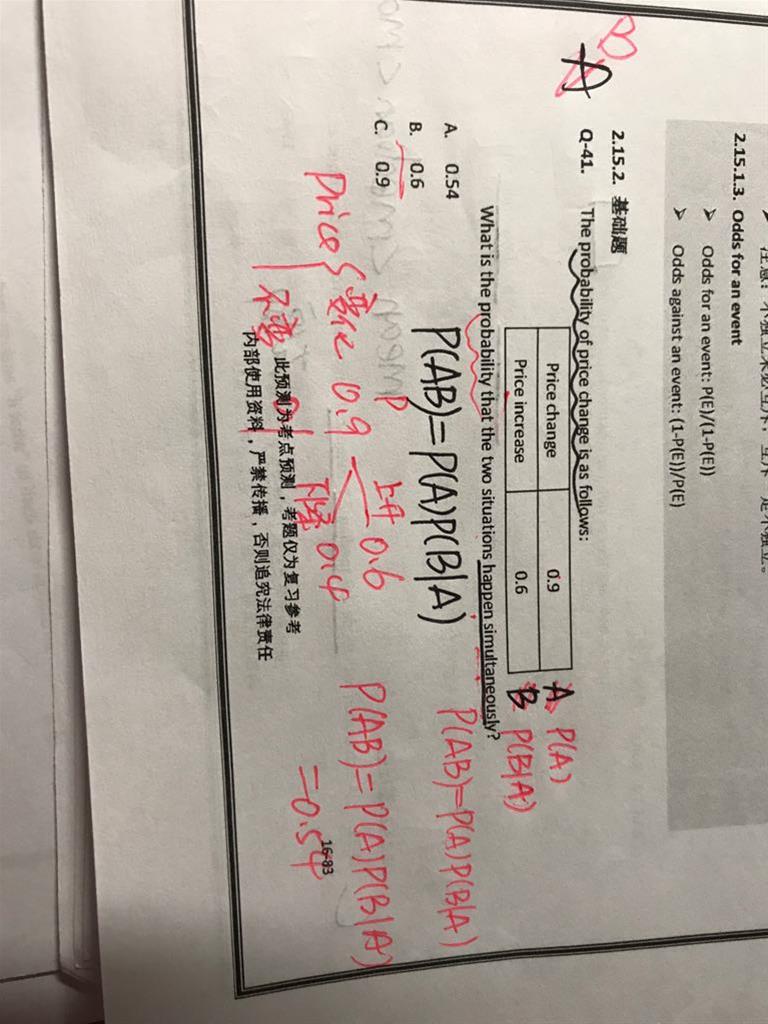 2.15.1.3. Odds for an event
➢ Odds for an event: P(E)/(1-P(E))
➢ Odds against an event: (1-P(E))/P(E)
2.15.2. 基础题
Q-41. The probability of price change is as follows:
Price change 0.9 A P(A)
Price increase 0.6 B P(B|A)
What is the probability that the two situations happen simultaneously?
A. 0.54
B. 0.6
C. 0.9
P(AB)=P(A)P(B|A)
P(AB)=P(A)P(B|A)
Price 变化 0.9 上升 0.6
下降 0.4
不变
P(AB)=P(A)P(B|A)
=0.54
此预测为考点预测，考题仅为复习参考
内部使用资料，严禁传播，否则追究法律责任
16-83